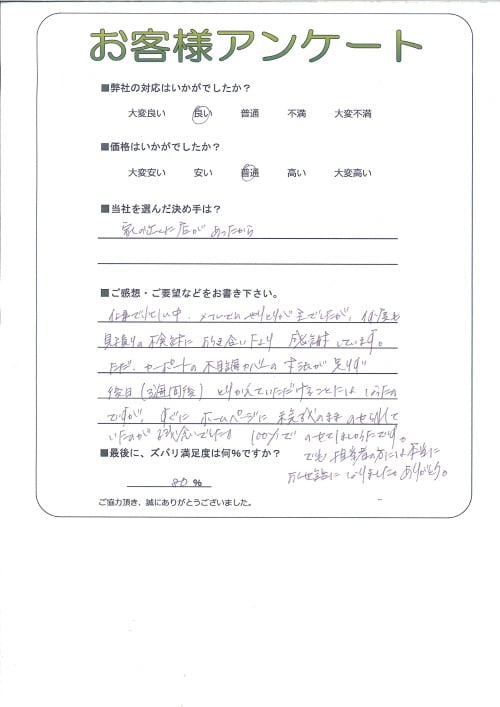 お客様アンケート
■弊社の対応はいかがでしたか？
大変良い 良い 普通 不満 大変不満
■価格はいかがでしたか？
大変安い 安い 普通 高い 大変高い
■当社を選んだ決め手は？
家の近くに店があったから
■ご感想・ご要望などをお書き下さい。
仕事で忙しい中、メールでのやりとりが主でしたが、何度も
見積りの検討にお付き合い下さり 感謝しています。
ただ、カーポートの木目調カバーの寸法が足りず
後日(3週間後) とりかえていただけることにはなったの
ですが、すぐにホームページに未完成のまま のせられて
いたのが残念でした。 100%で のせてほしかったです。
でも担当者の方には本当に
お世話になりました。ありがとう。
■最後に、ズバリ満足度は何％ですか？
80 %
ご協力頂き、誠にありがとうございました。